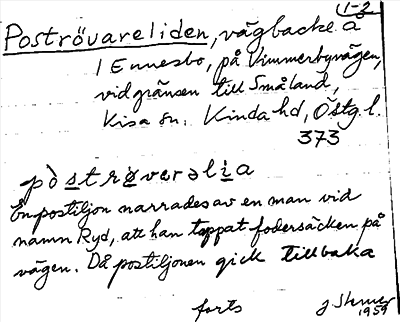 1-2
Poströvareliden, vägbacke å
1 Ennesbo, på Vimmerbyvägen,
vid gränsen till Småland,
Kisa sn. Kinda hd, Östg. l.
373
pòströverəlia
En postiljon narrades av en man vid
namn Ryd, att han tappat fodersäcken på
vägen. Då postiljonen gick tillbaka
forts
1959